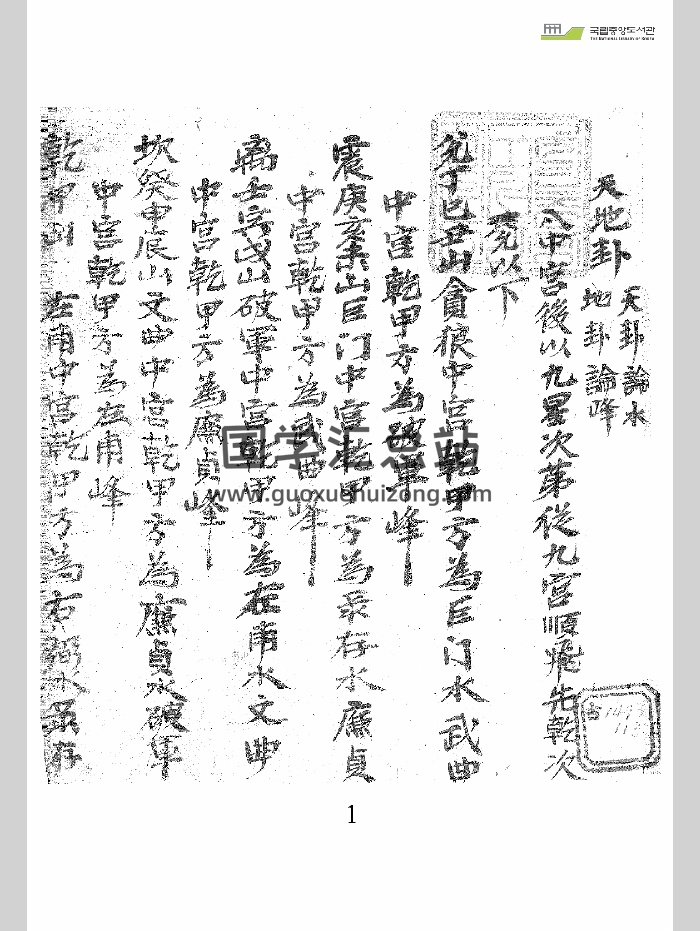 국립중앙도서관
THE NATIONAL LIBRARY OF KOREA
天地卦
天卦論水
地卦論峰
入中宮後以九星次第從九宮順飛先乾次
兌以下
兌丁巳丑山貪狼中宮乾甲方為巨门水武曲
中宮乾甲方為破軍峰
震庚亥未山巨门中宮乾甲方為彔存水廉貞
中宮乾甲方為武曲峰
离壬寅戌山破軍中宮乾甲方為左甫水文曲
中宮乾甲方為廉貞峰
坎癸申辰山文曲中宮乾甲方為廉貞水破軍
中宮乾甲方為左甫峰
乾甲山 左甫中宮乾甲方為右弼水彔存
国学汇总站
www.guoxuehuizong.com
1